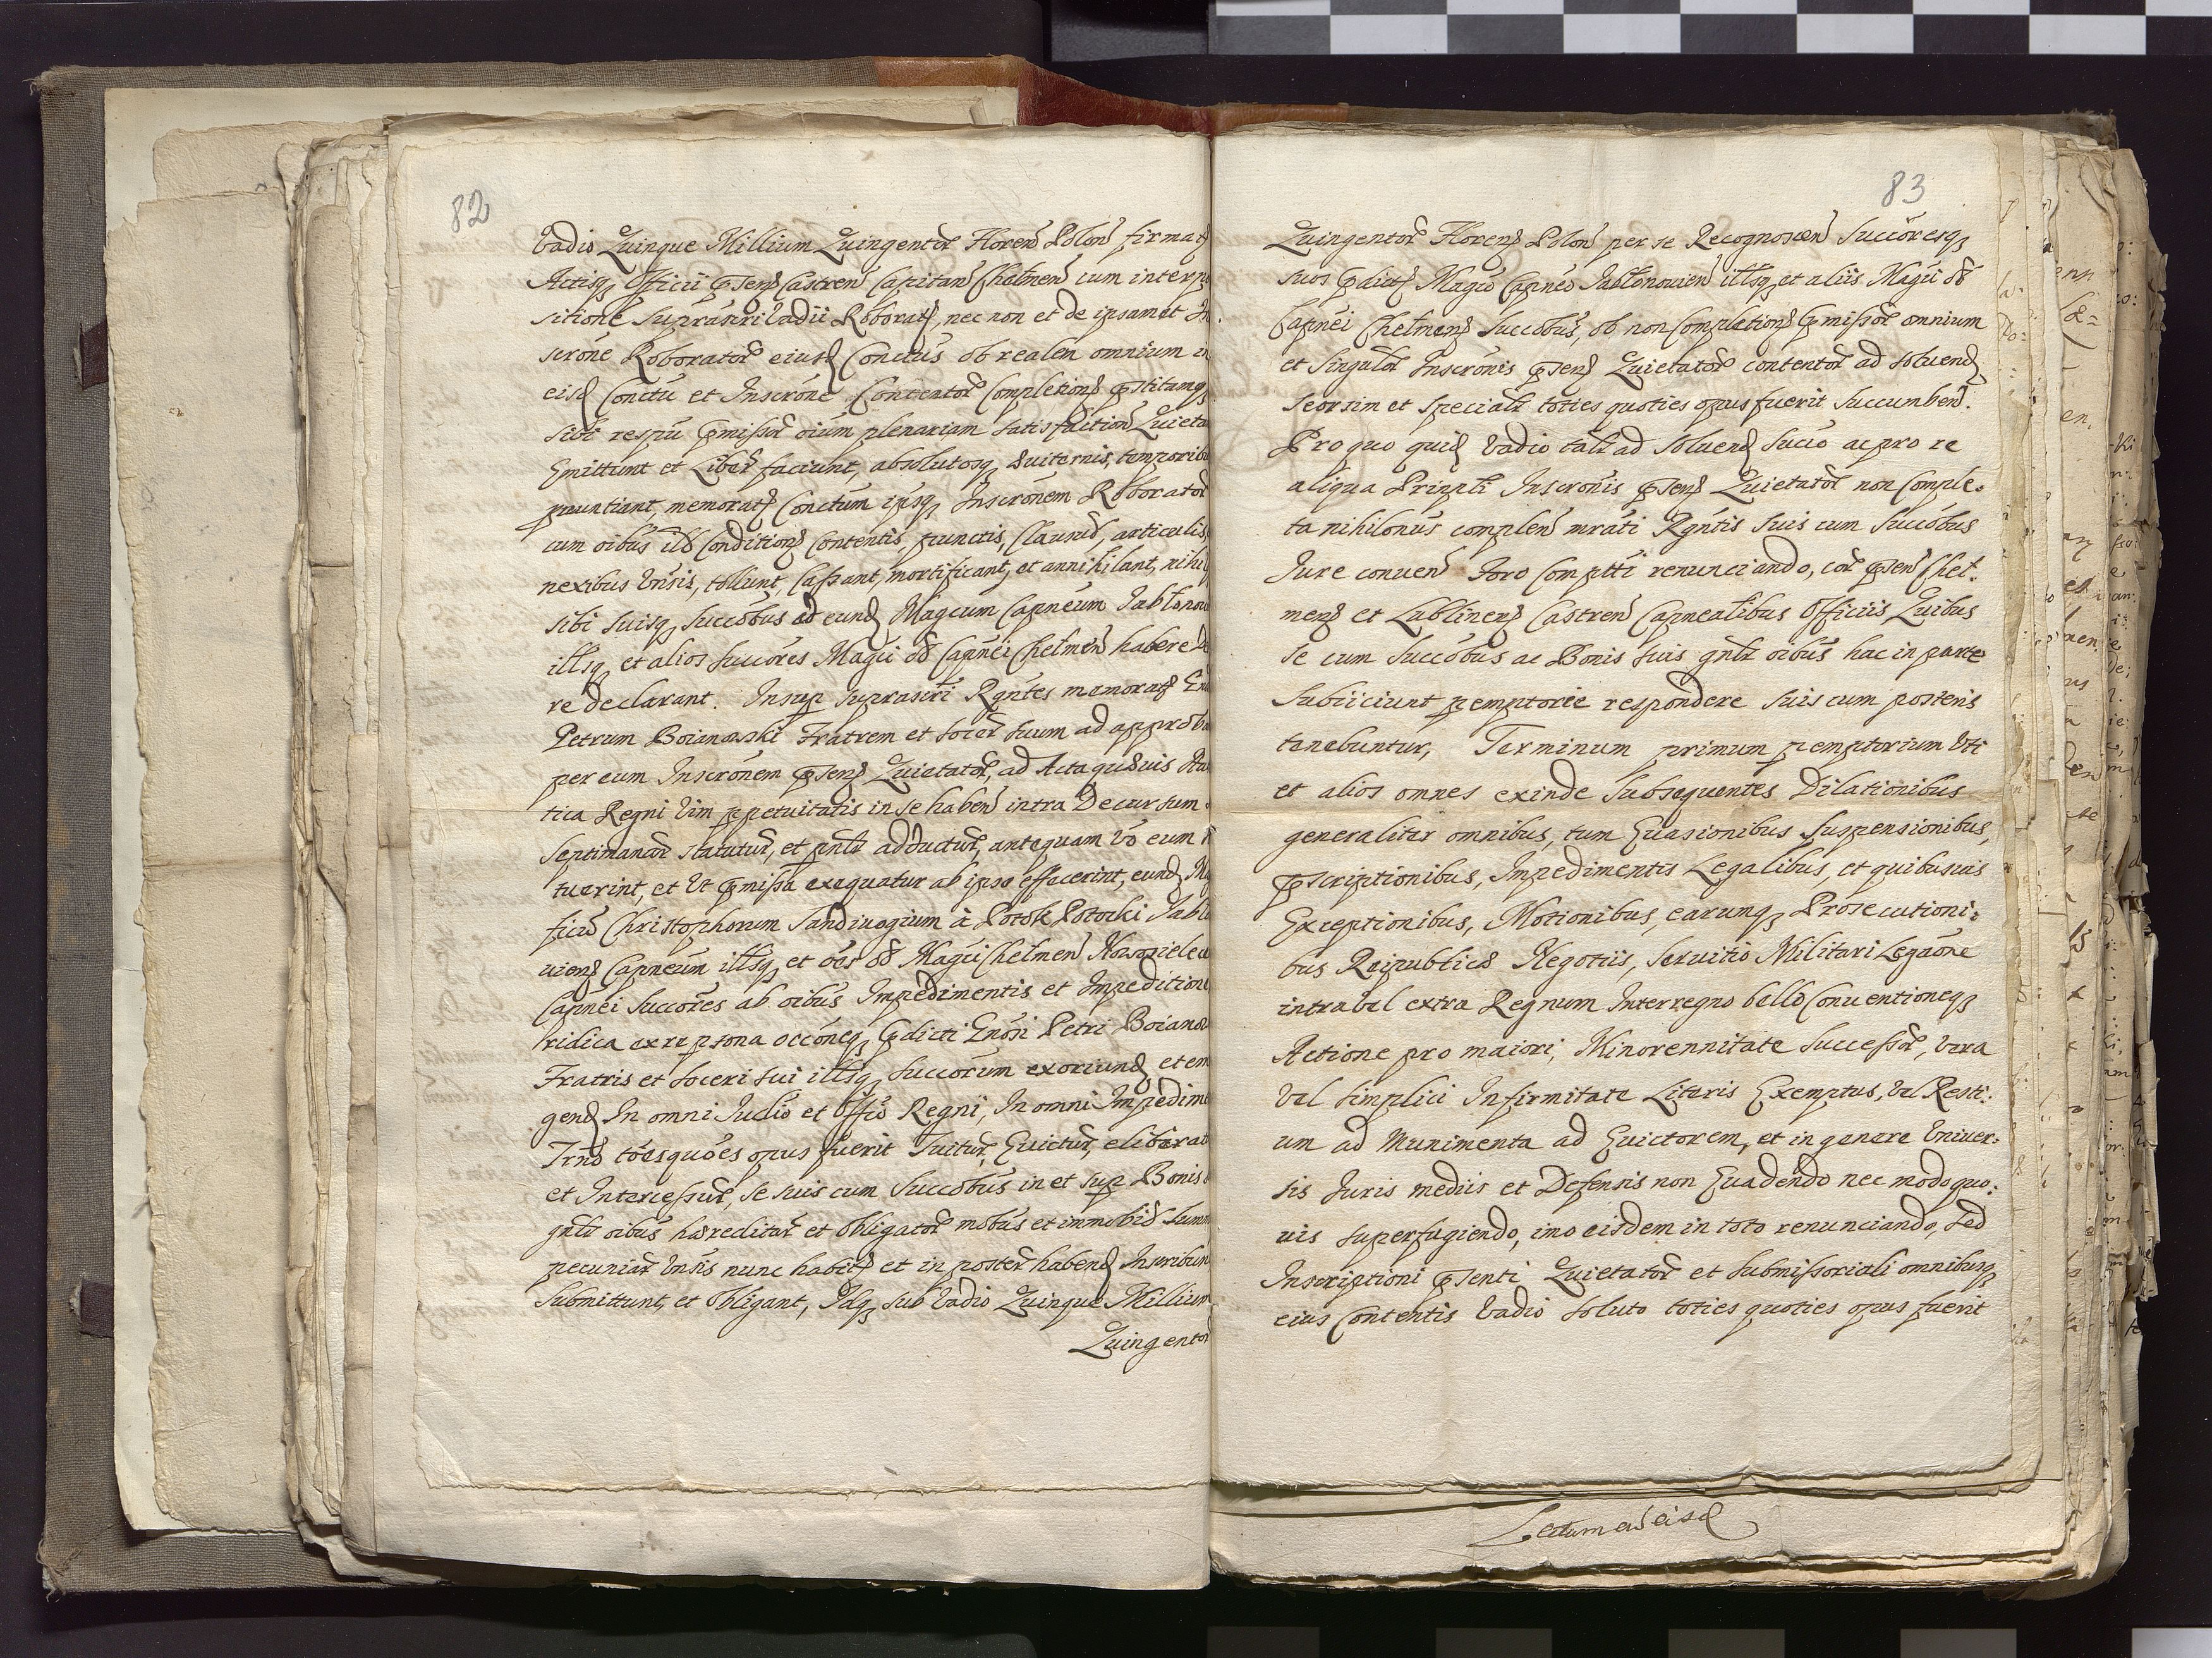 82
Vadio Quinque Millium Quingentor Floren Polon firmat
Actisq Officii pnsen Castren Capitan Chelmen cum interpo
sitione Suprascri Vadii Roborat, nec non et de ipsamet In
scrone Roborator eiusd Conctus ob realem omnium in
eisd Conctu et Inscrone Contentor Completion pstitamq
sibi respu pmissor oium plenariam satisfaction Quieta
Emittunt et Liber faciunt, absolutosq œuiternis temporibu
pnuntiant, memorat Conctum ipsq Inscronem Roborator
cum oibus illo Condition Contentis, punctis, Clausul, articulis,
nexibus Vnsis, tollunt, Cassant, mortificant, et annihilant, nihil
sibi suisq Succobus ad eund Magcum Capneum Jablonou
illsq et alios Succores Magci œ Capnei Chelmen habere
re declarant. Insup suprascri Rgntes memorat
Petrum Boianowski Fratrem et Socer suum ad approba
per eum Inscronem pnsen Quietator, ad Acta quæuis
tica Regni Vim ppetuitatis in se haben intra Decursum
Septimanar statutur, et pnlr adductur, antequam Vo eum
tuerint, et Vt pmissa exequatur ab ipso effecerint, eund Mag
ficu Christophorum Sandiuogium à Potok Potocki Jablo
uien Capneum illsq et oes œ Magci Chelmen
Capnei Succores ab oibus Impedimentis et Impeditione
ridica ex re psona occoneq pdicti Gnosi Petri Boianow
Fratris et Soceri sui illsq Succorum exoriund et em
gend In omni Judio et Offio Regni, In omni Impedim
Trno toes quoes opus fuerit Tuitur, Euictur, eliberat
et Intercessur, se suis cum Succobus in et sup Bonis
gnlr oibus hæreditar et Obligator mobus et immobil Summ
pecuniar Vnsis nunc habit et in poster habend Inscribun
Submittunt, et Obligant, Idq sub Vadio Quinque Millium
Quingentor
83
Quingentor Floren Polon per se Recognoscen Succoresq
suos pdict Magco Capneo Jablonouien illsq et aliis Magci œ
Capnei Chelmen Succobus, ob non Completion pmissor omnium
et Singulor Inscronis pnsen Quietator contentor ad soluend
seorsim et specialr toties quoties opus fuerit succumben.
Pro quo quid Vadio talr ad soluend succo ac pro re
aliqua Prinpli Inscronis pnsen Quietator non Comple-
ta nihilonus complen mrati Rgntis suis cum Succobus
Jure conuen Foro Comptti renunciando, cor pnsen Chel-
men et Lublinen Castren Capnealibus Officiis Quibus
se cum Succobus ac Bonis suis gnlr oibus hac in parte
Subiiciunt pemptorie respondere suis cum posteris
tenebuntur, Terminum primum pemptorium Vti
et alios omnes exinde Subsequentes Dilationibus
generaliter omnibus, tum Euasionibus Suspensionibus,
pscriptionibus, Impedimentis Legalibus, et quibusuis
Exceptionibus, Motionibus, earumq Prosecutioni-
bus Reipublicæ Negotiis, seruitio Militari Legaone
intra Vel extra Regnum Interregno bello Conuentioneq
Actione pro maiori, Minorennitate Successor, Vera
Vel simplici Infirmitate Literis Exemptus, Vel Resti-
um ad Munimenta ad Euictorem, et in genere Vniuer-
sis Juris mediis et Defensis non Euadendo nec modo quo-
uis superfugiendo, imo eisdem in toto renunciando, sed
Inscriptioni pnsenti Quietator et Submissoriali omnibusq
eius Contentis Vadio soluto toties quoties opus fuerit